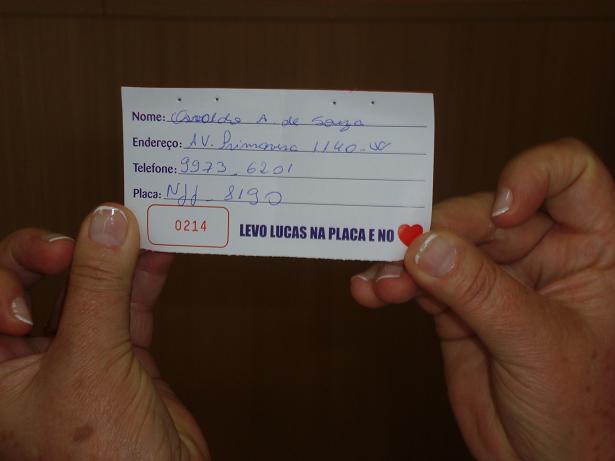 Nome: Osvaldo A. de Souza
Endereço: AV. Primavera 1140-W
Telefone: 9973-6201
Placa: Njf-8190
0214
LEVO LUCAS NA PLACA E NO